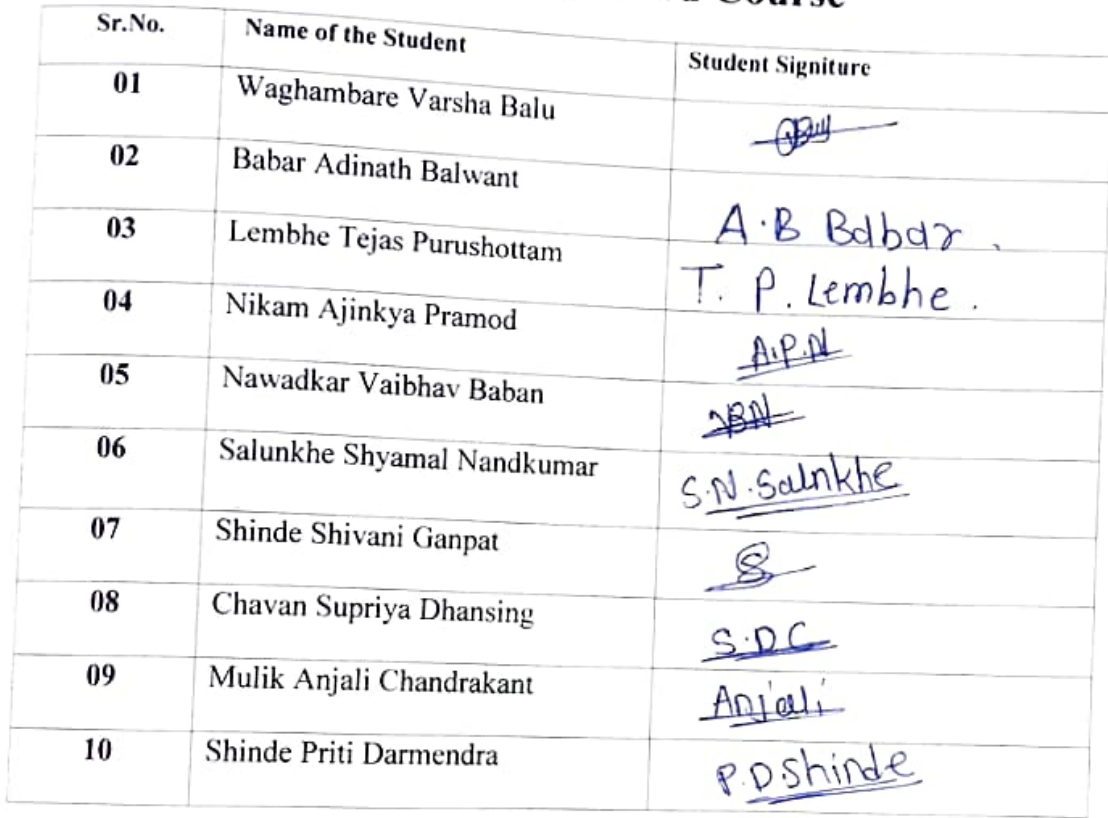 Course
Sr.No. Name of the Student Student Signiture
01 Waghambare Varsha Balu
02 Babar Adinath Balwant A.B Babar.
03 Lembhe Tejas Purushottam T. P. Lembhe.
04 Nikam Ajinkya Pramod A.P.N
05 Nawadkar Vaibhav Baban VBN
06 Salunkhe Shyamal Nandkumar S.N.Salnkhe
07 Shinde Shivani Ganpat S
08 Chavan Supriya Dhansing S.D.C
09 Mulik Anjali Chandrakant Anjali
10 Shinde Priti Darmendra P.D.Shinde